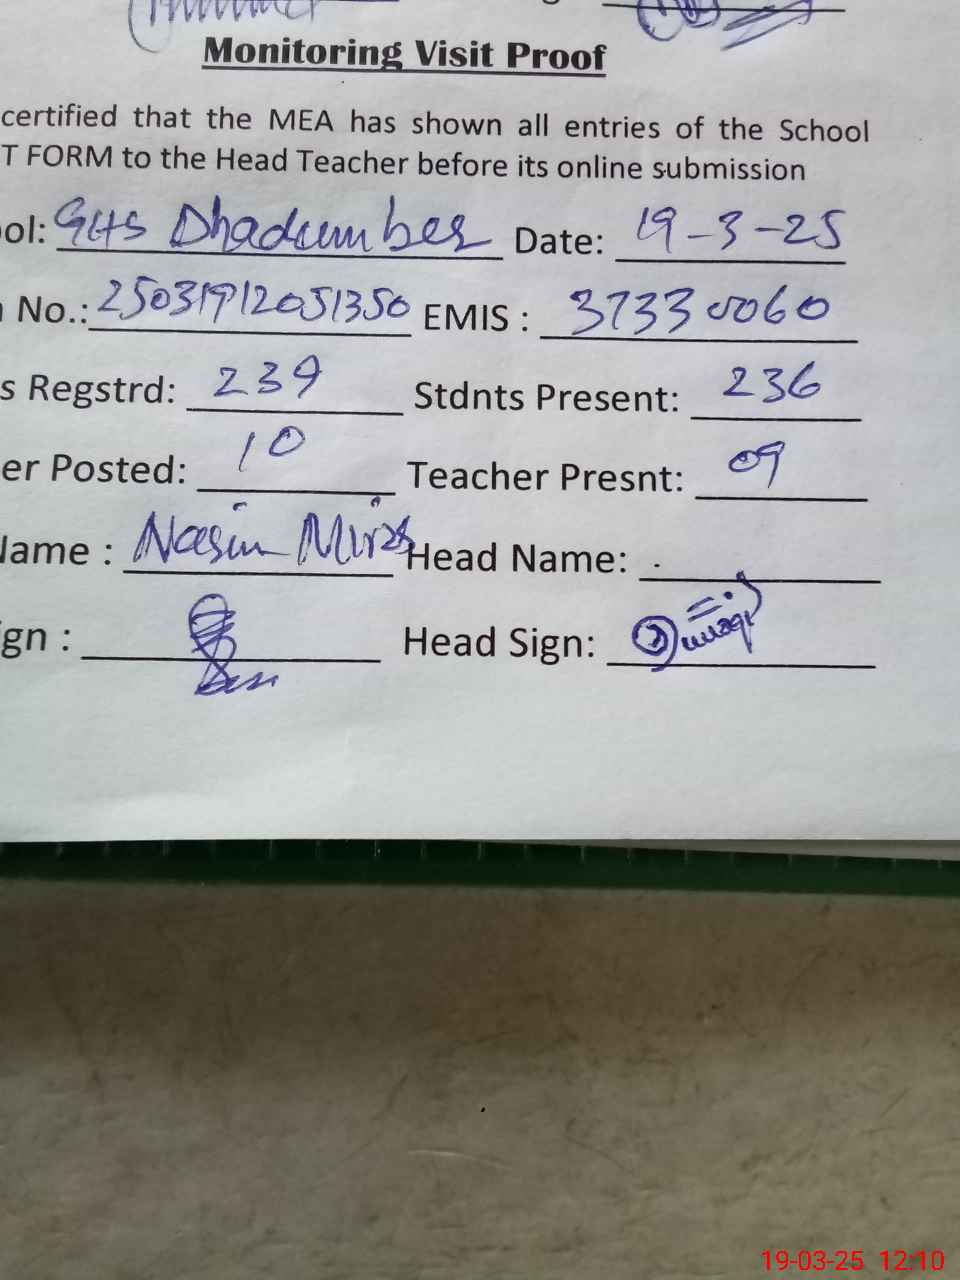 Monitoring Visit Proof
certified that the MEA has shown all entries of the School
T FORM to the Head Teacher before its online submission
ol: GHS Dhadumber Date: 19-3-25
No.: 25031912051350 EMIS : 37330060
s Regstrd: 239 Stdnts Present: 236
er Posted: 10 Teacher Presnt: 09
ame : Nasim Mirza Head Name:
gn : Head Sign:
19-03-25 12:10